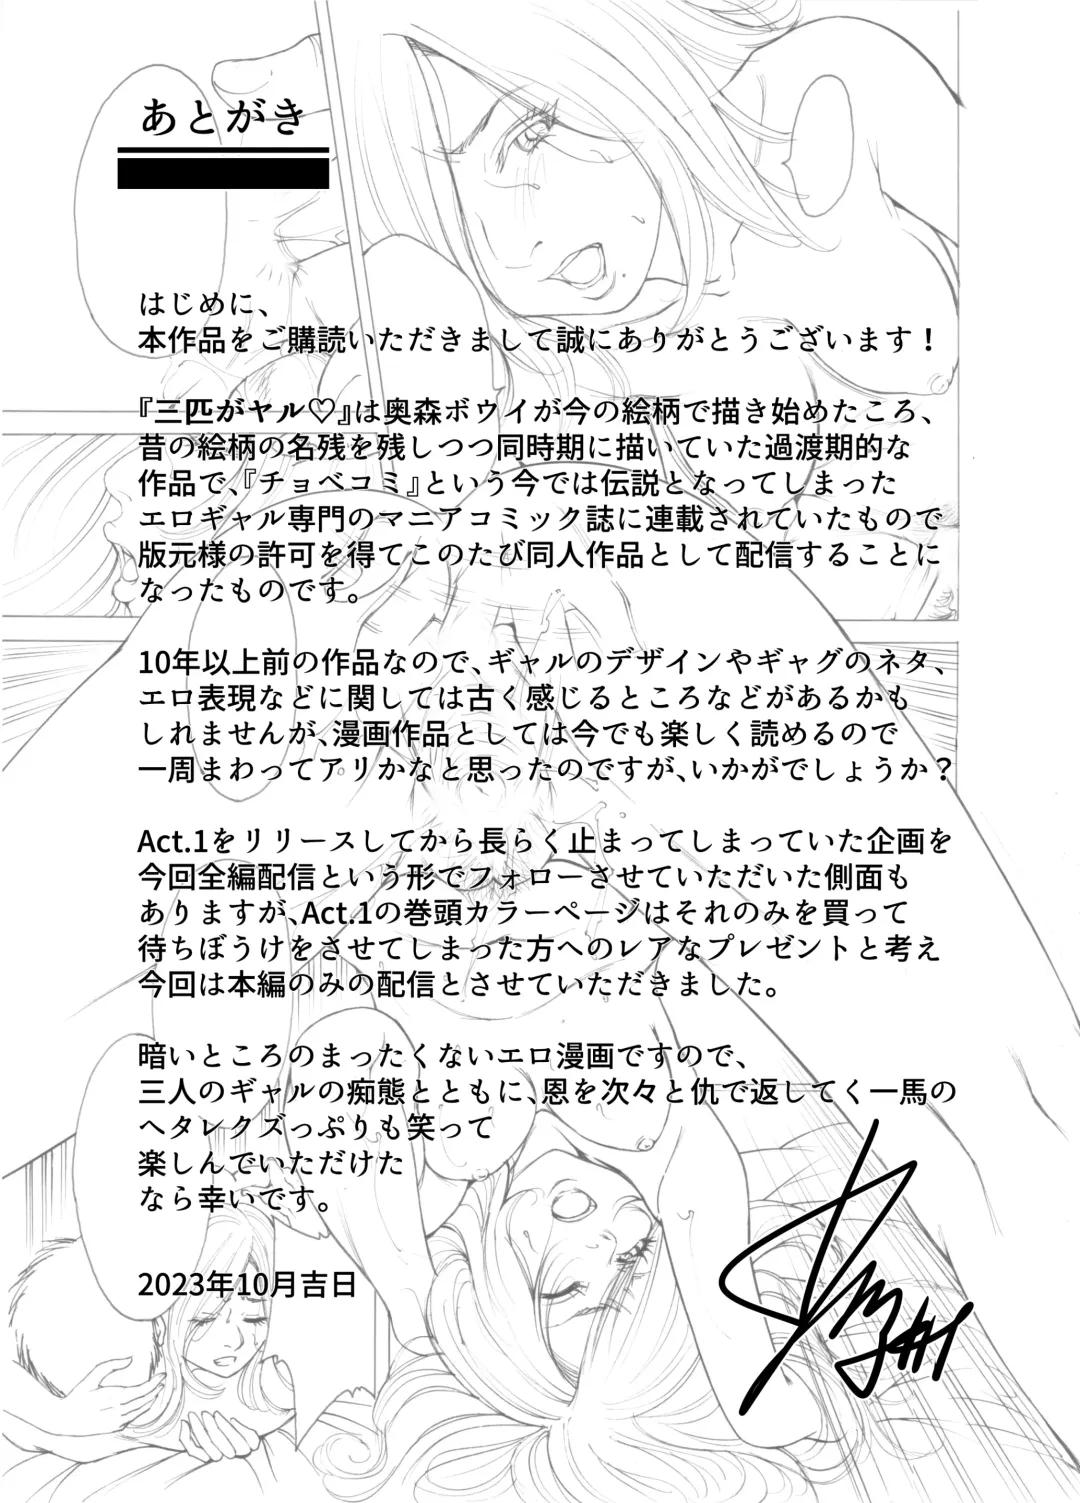 あとがき
はじめに、
本作品をご購読いただきまして誠にありがとうございます！
『三匹がヤル♡』は奥森ボウイが今の絵柄で描き始めたころ、
昔の絵柄の名残を残しつつ同時期に描いていた過渡期的な
作品で、『チョベコミ』という今では伝説となってしまった
エロギャル専門のマニアコミック誌に連載されていたもので
版元様の許可を得てこのたび同人作品として配信することに
なったものです。
10年以上前の作品なので、ギャルのデザインやギャグのネタ、
エロ表現などに関しては古く感じるところなどがあるかも
しれませんが、漫画作品としては今でも楽しく読めるので
一周まわってアリかなと思ったのですが、いかがでしょうか？
Act.1をリリースしてから長らく止まってしまっていた企画を
今回全編配信という形でフォローさせていただいた側面も
ありますが、Act.1の巻頭カラーページはそれのみを買って
待ちぼうけをさせてしまった方へのレアなプレゼントと考え
今回は本編のみの配信とさせていただきました。
暗いところのまったくないエロ漫画ですので、
三人のギャルの痴態とともに、恩を次々と仇で返してく一馬の
ヘタレクズっぷりも笑って
楽しんでいただけた
なら幸いです。
2023年10月吉日